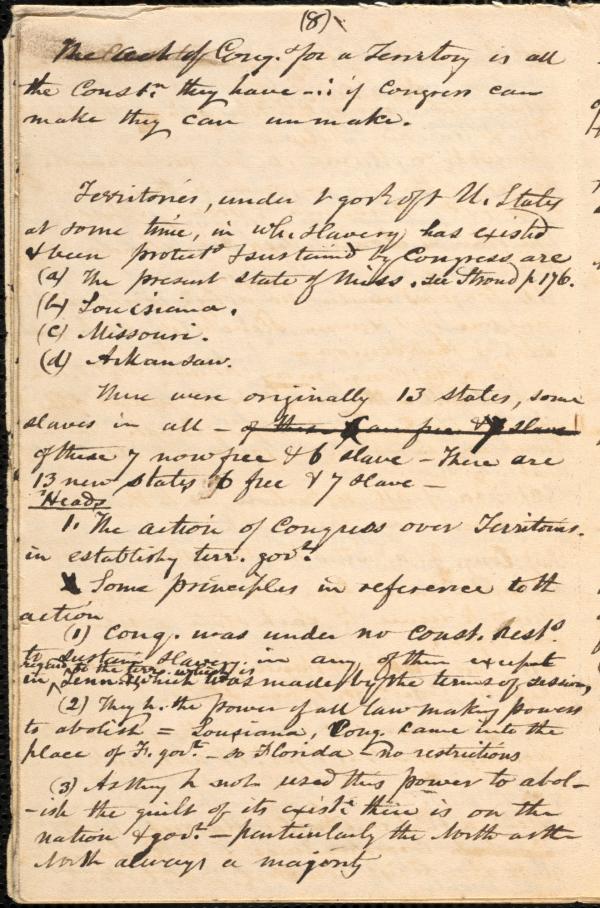 (8)
The act of Cong. for a Territory is all
the Const.n they have – ∴ if Congress can
make they can unmake.
Territories, under t gov't of t U. States
at some time, in wh. slavery has existed
& been protect.d & sustained by Congress, are
(a) The present state of Miss. see Stroud p 176.
(b) Louisiana.
(c) Missouri.
(d) Arkansaw.
There were originally 13 states, some
slaves in all – of these are free & 7 slave
of these 7 now free & 6 slave – There are
13 new states 6 free & 7 slave –
Heads
1. The action of Congress over Territories.
in establishg terr. gov.t
Some principles in reference to tt
action
(1) Cong. was under no const. rest.s
to sustain slavery, in any of them except
regard to the terr. which is
in Tenn. which was made by the terms of session,
(2) They h. the power of all law making powers
to abolish = Louisiana, Cong. came into the
place of F. gov.t – so Florida – no restrictions
(3) As they h not used this power to abol-
-ish the guilt of its exist.e there is on the
nation & gov.t – particularly the North as the
North always a majority